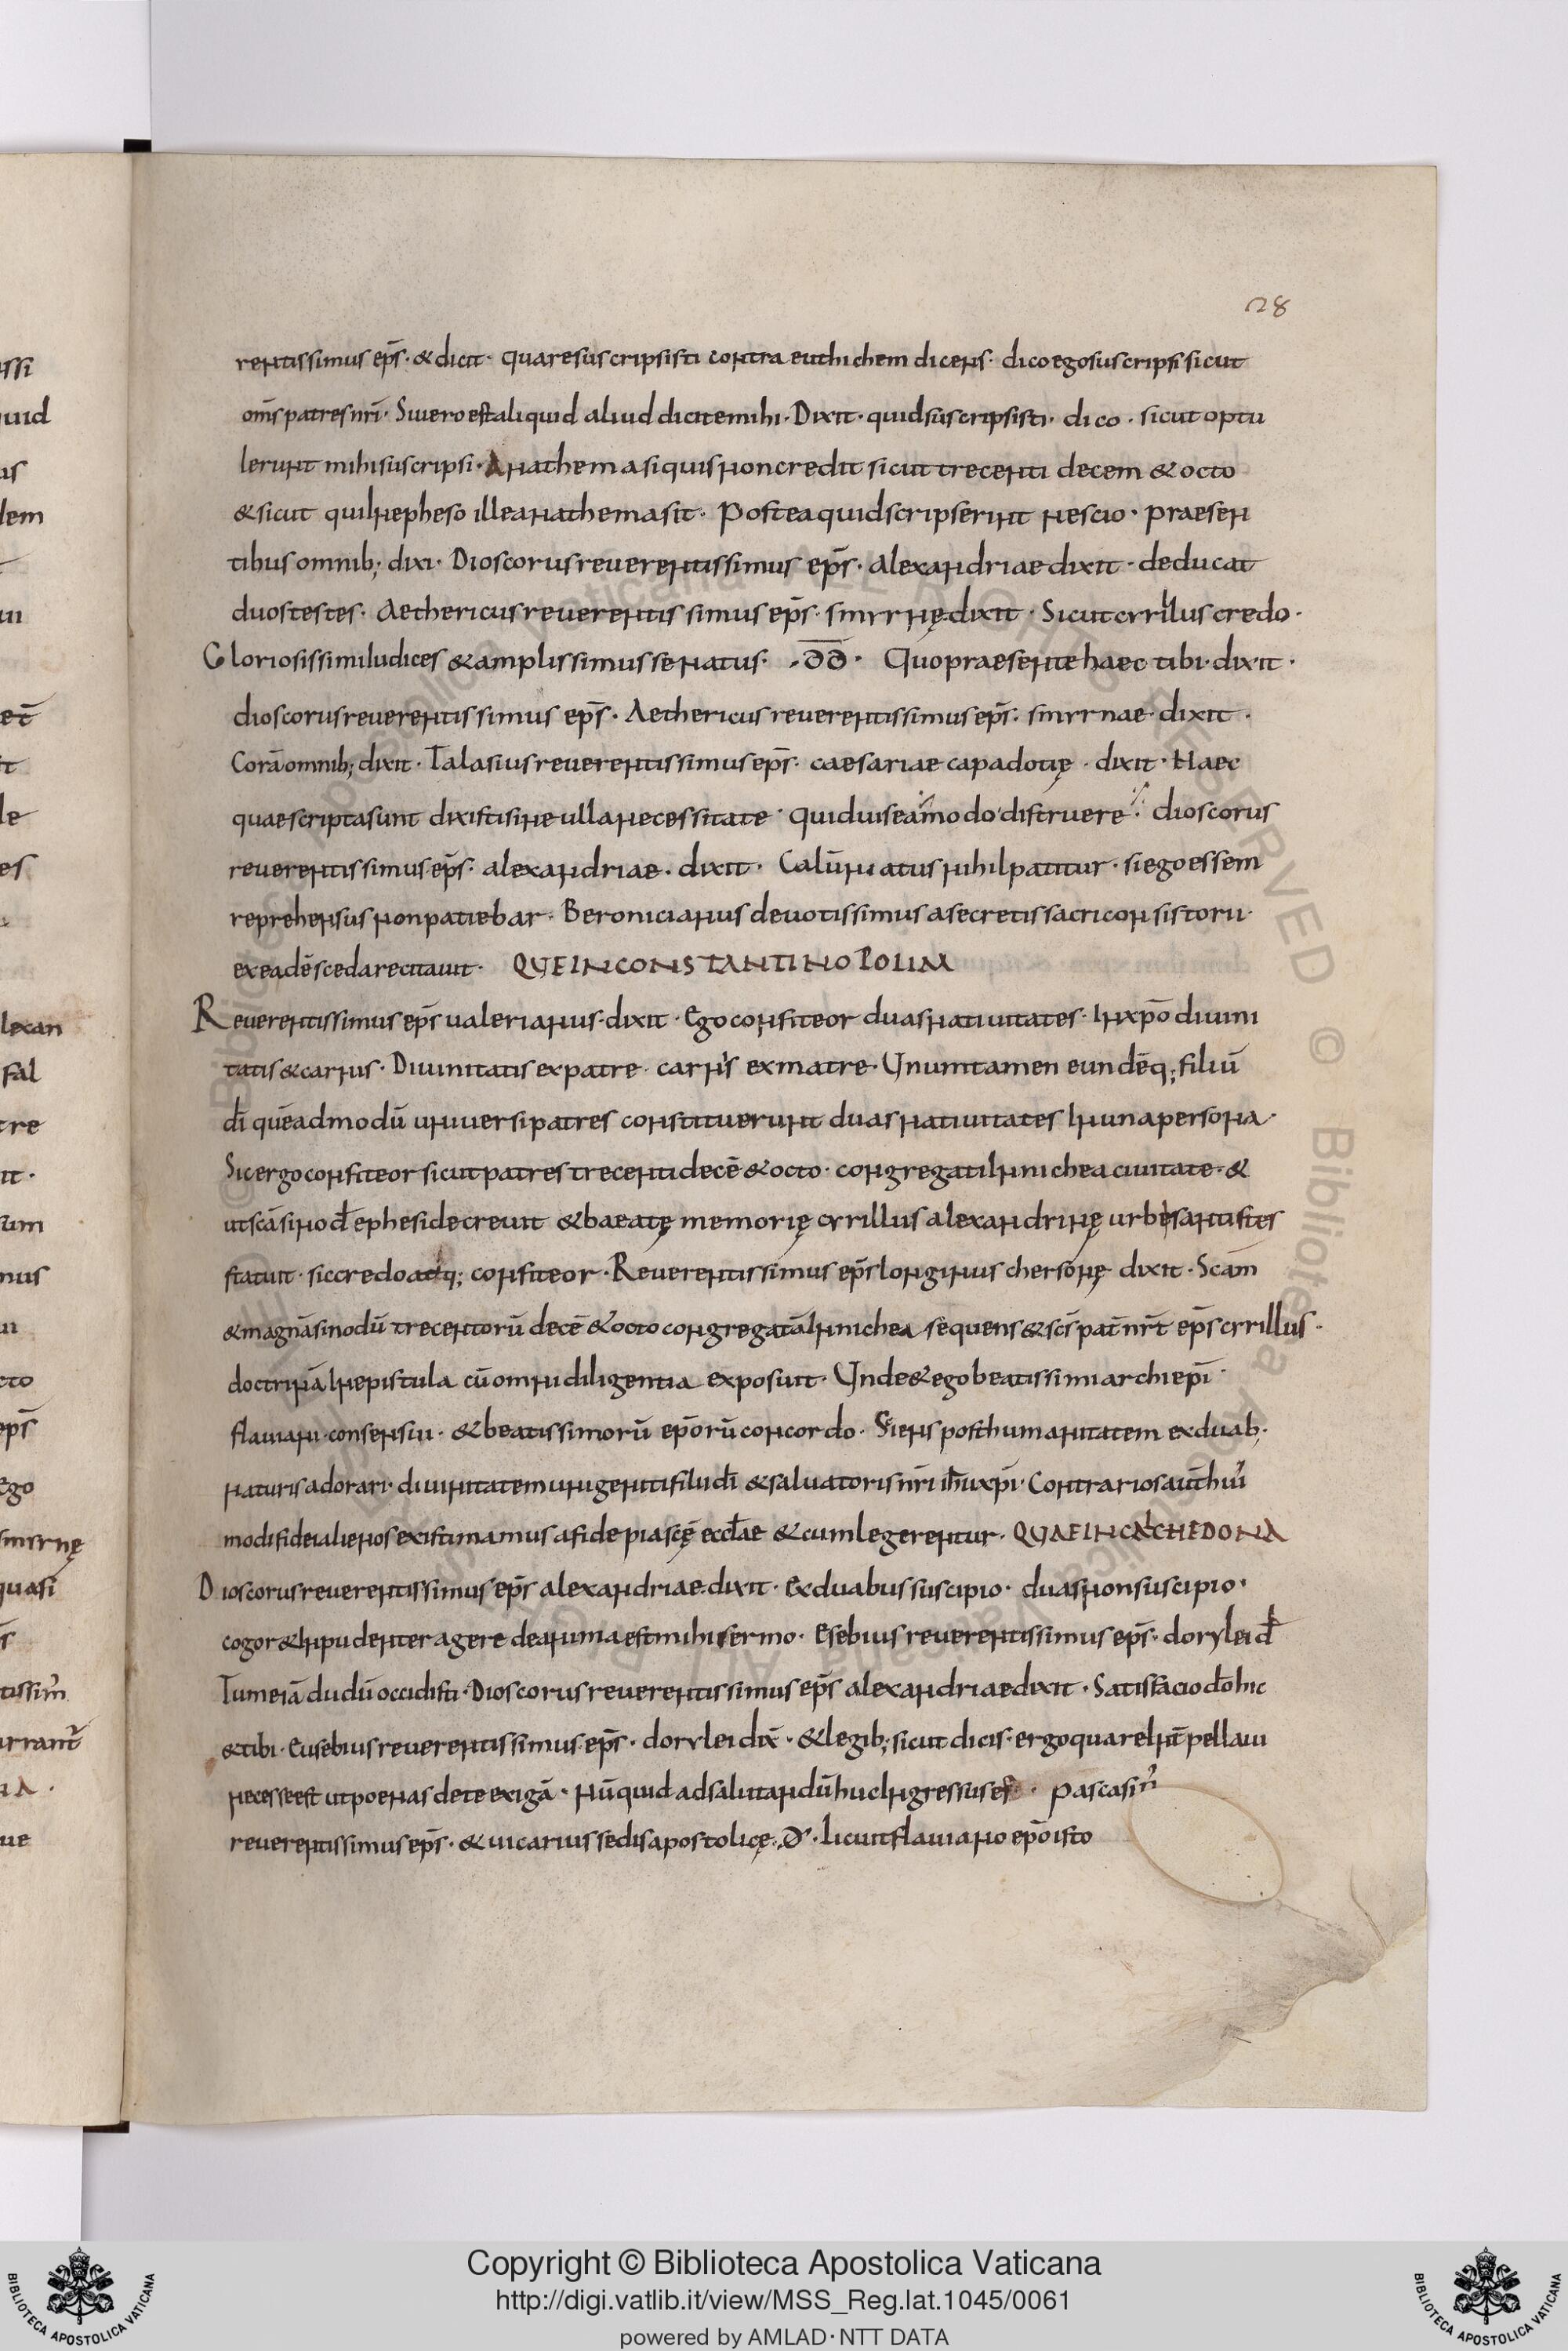 28
rentissimus ep̄s · & dicit · quare suscripsisti contra euthichem dicens · dico ego suscripsi sicut
om̄s patres nr̄i · Si uero est aliquid aliud dicite mihi · Dixit · quid suscripsisti · dico · sicut optu
lerunt mihi suscripsi · Anathema si quis non credit sicut trecenti decem & octo
& sicut qui In epheso ille anathema sit · Postea quid scripserint nescio · praesen
tibus omnib; dixi · Dioscorus reuerentissimus ep̄s · alexandriae dixit · deducat
duos testes · Aethericus reuerentissimus ep̄s · smyrnę dixit · Sicut cyrillus credo ·
Gloriosissimi Iudices & amplissimus senatus · · ꝺꝺ̄ · Quo praesente haec tibi · dixit ·
dioscorus reuerentissimus ep̄s · Aethericus reuerentissimus ep̄s · smyrnae · dixit ·
Corā omnib; dixit · Talasius reuerentissimus ep̄s · caesariae capadotię · dixit · Haec
quae scripta sunt dixisti sine ulla necessitate · quid uis ea modo distruere · dioscorus
reuerentissimus ep̄s · alexandriae · dixit · Calūniatus nihil patitur · si ego essem
reprehensus non patiebar · Beronicianus deuotissimus a secretis sacri consistorii ·
ex eadē sceda recitauit · QUE IN CONSTANTINOPOLIM
Reuerentissimus ep̄s ualerianus · dixit · Ego confiteor duas natiuitates · In xp̄o diuini
tatis & carnis · Diuinitatis ex patre · carnis ex matre · Unum tamen eundēq; filiū
dī quēadmodū uniuersi patres constituerunt duas natiuitates In una persona ·
Sic ergo confiteor sicut patres trecenti decē & octo · congregati In nichea ciuitate · &
ut scā sinod ephesi decreuit & baeatę memorię cyrillus alexandrinę urbis antistes
statuit · sic credo atq; confiteor · Reuerentissimus ep̄s longinus chersonę dixit · Scām
& magnā sinodū trecentorū decē & octo congregatā In nichea sequens & scs̄ pat̄ nr̄t ep̄s cyrillus ·
doctrinā In epistula cū omni diligentia exposuit · Unde & ego beatissimi archiepī
flauiani · consensui · & beatissimorū ep̄orū concordo · Sciens post humanitatem ex duab;
naturis adorari · diuinitatem unigeniti filii dī & saluatoris nr̄i ih̄u xp̄i · Contrarios aūt hui'
modi fidei alienos existimamus a fide pia scę̄ eccl̄ae & cum legerentur · QUAE IN CALCHEDONA
Dioscorus reuerentissimus ep̄s alexandriae · dixit · Ex duabus suscipio · duas non suscipio ·
cogor & Inpudenter agere de anima est mihi sermo · Esebius reuerentissimus ep̄s · dorylei d
Tu me iā dudū occidisti · Dioscorus reuerentissimus ep̄s alexandriae dixit · Satisfacio dō hic
& tibi · Eusebius reuerentissimus ep̄s · dorylei dix̄ · & legib; sicut dicis · ergo quare Int̄pellaui
necesse est ut poenas de te exigā · nūquid ad salutandū huc Ingressus es · Pascasin'
reuerentissimus ep̄s · & uicarius sedis apostolicę · ꝺ' · licuit flauiano ep̄o isto
Copyright © Biblioteca Apostolica Vaticana
http://digi.vatlib.it/view/MSS_Reg.lat.1045/0061
powered by AMLAD · NTT DATA
BIBLIOTECA APOSTOLICA VATICANA
BIBLIOTECA APOSTOLICA VATICANA